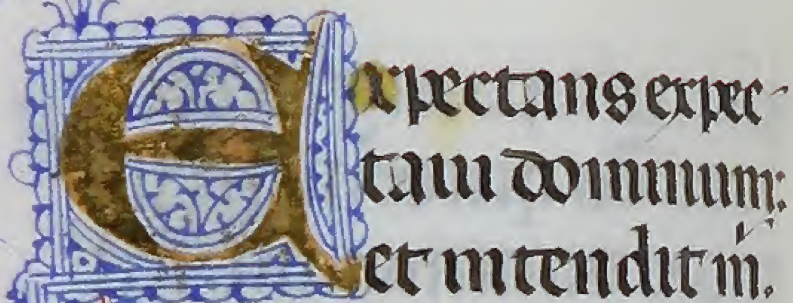 Expectans expec-
taui dominum:
et intendit m̄.